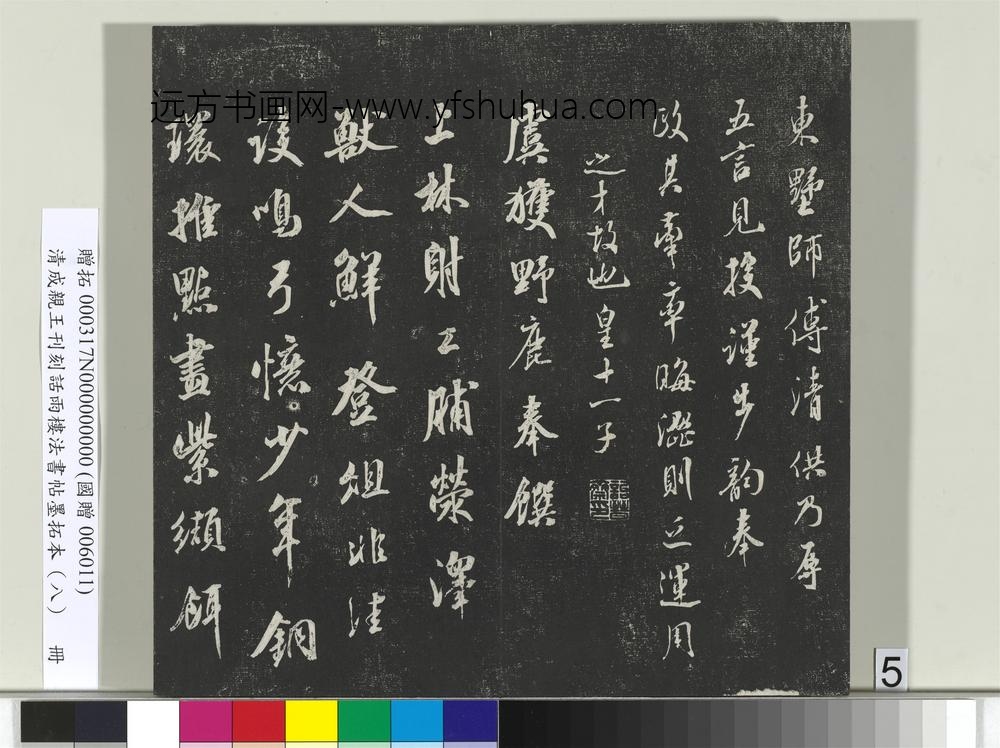 東墅師傅清供乃辱
五言見投謹步韵奉
政其牽率晦澀則乏運用
之才故也皇十一子
虞獲野鹿奉饌
上林射工脯榮澤
獸人鮮登俎非洼
後鳴弓憶少年銅
環推點畫紫纈餌
远方书画网-www.yfshuhua.com
贈拓 000317N000000000(國贈 006011)
清成親王刊刻話雨樓法書帖墨拓本(八) 冊
5